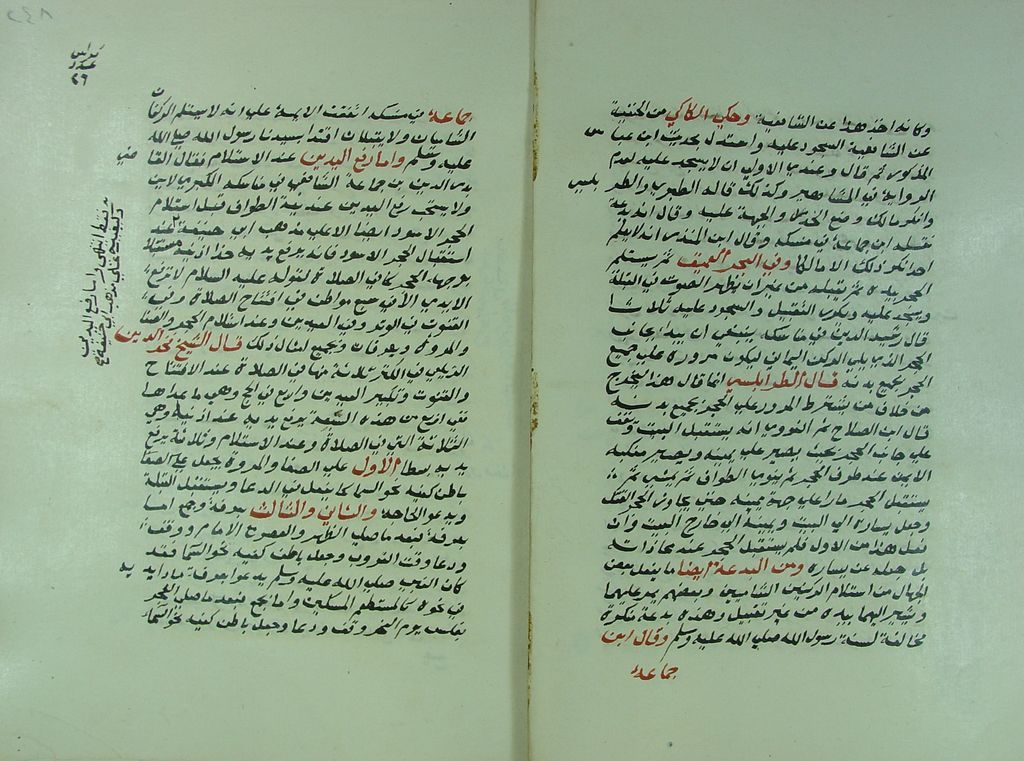 وكانه اخذ هذا عن الشافعية وحكي الكاكي من الحنفية
عن الشافعية السجود عليه واستدل بحديث ابن عباس
المذكور ثم قال وعندي الاولى ان لا يسجد عليه لعدم
الرواية في المشاهير وكذلك قاله الطبري والطرابلسي
وانكر مالك وضع الخدين والجبهة عليه وقال انه بدعة
نقله ابن جماعة في منسكه وقال ابن المنذر انه لا يعلم
احد انكر ذلك الا مالكا وفي البحر العميق ثم يستلم
الحجر بيده ثم يقبله من غير ان يظهر الصوت في القبلة
ويسجد عليه ويكرر التقبيل والسجود عليه ثلاثا
قال رشيد الدين في مناسكه ينبغي ان يبدا بجانب
الحجر الذي يلي الركن اليماني ليكون مروره على جميع
الحجر بجميع بدنه قال الطرابلسي انما قال هذا ليخرج
من خلاف من يشترط المرور على الحجر بجميع بدنه
قال ابن الصلاح ثم النووي انه يستقبل البيت ويقف
على جانب الحجر بحيث يصير على يمينه ويصير منكبه
الايمن عند طرف الحجر ثم ينوي الطواف ثم يمشي
يستقبل الحجر مارا على جهة يمينه حتى يجاوز الحجر
وجعل يساره الى البيت ويمينه الى خارج البيت وان
فعل هذا من الاول فلم يستقبل الحجر عند محاذاته
بل جعله عن يساره ومن البدعة ايضا ما يفعله بعض
الجهال من استلام الركنين الشاميين وبعضهم يمر عليهما
ويشير اليهما بيده من غير تقبيل وهذه بدعة منكرة
مخالفة لسنة رسول الله صلى الله عليه وسلم وقال ابن
جماعة
كراس
عدد
٢٦
جماعة في منسكه اتفقت الايمة على انه لا يستلم الركنان
الشاميان ولا يقبلان اقتدا بسيدنا رسول الله صلى الله
عليه وسلم واما رفع اليدين عند الاستلام فقال القاضي
بدر الدين بن جماعة الشافعي في مناسكه الكبرى
ولا يستحب رفع اليدين عند نية الطواف قبل استلام
الحجر الاسود ايضا الا على مذهب ابي حنيفة عند
استقبال الحجر الاسود فانه يرفع يديه حذا اذنيه مستقبلا
بوجهه الحجر كما في الصلاة لقوله عليه السلام لا ترفع
الايدي الا في سبع مواطن في افتتاح الصلاة وفي
القنوت في الوتر وفي العيدين وعند استلام الحجر والصفا
والمروة وبعرفات وبجمع ذلك قال الشيخ فخر الدين
الزيلعي في الكنز ثلاثة منها في الصلاة عند الافتتاح
والقنوت وتكبير العيدين واربع في الحج وهي ما عداها
ففي اربع من هذه السبعة يرفع يديه عند اذنيه وهي
الثلاثة التي في الصلاة وعند الاستلام وثلاثة يرفع
يديه بسطا الاول على الصفا والمروة يجعل
باطن كفيه نحو السما كما يفعل في الدعا ويستقبل القبلة
ويدعو والثاني والثالث بعرفة وجمع اما
بعرفة فبعد ما صلى الظهر والعصر مع الامام ووقف
ودعا وقت الغروب وجعل باطن كفيه نحو السما فقد
كان النبي صلى الله عليه وسلم يدعو بعرفة مادا يديه
في نحره كالمستطعم المسكين واما بجمع فبعد ما صلى الفجر
بغلس يوم النحر وقف ودعا وجعل باطن كفيه نحو السما